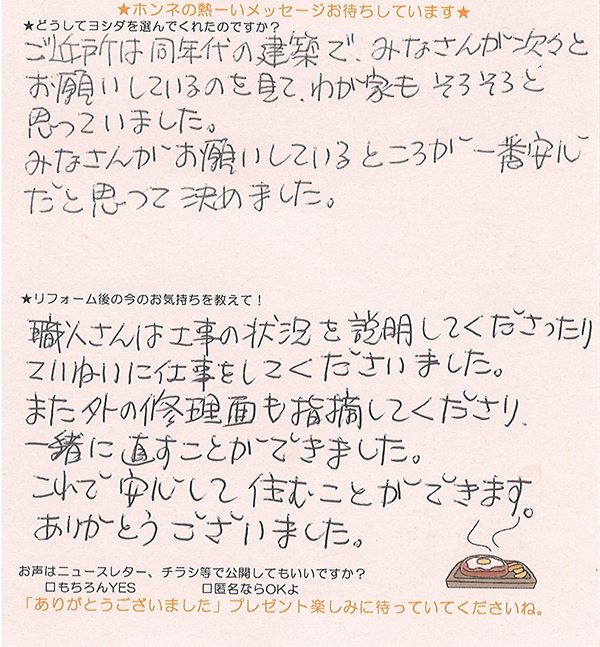 ★ホンネの熱ーいメッセージお待ちしています★
★どうしてヨシダを選んでくれたのですか?
ご近所は同年代の建築で、みなさんが次々と
お願いしているのを見て、わが家も そろそろと
思っていました。
みなさんが お願いしているところが 一番安心
だと思って 決めました。
★リフォーム後の今のお気持ちを教えて!
職人さんは工事の状況を説明してくださったり
ていねいに仕事をしてくださいました。
また外の修理面も指摘してくださり、
一緒に直すことができました。
これで安心して住むことができます。
ありがとうございました。
お声はニュースレター、チラシ等で公開してもいいですか?
□もちろんYES □匿名ならOKよ
「ありがとうございました」プレゼント楽しみに待っていてくださいね。